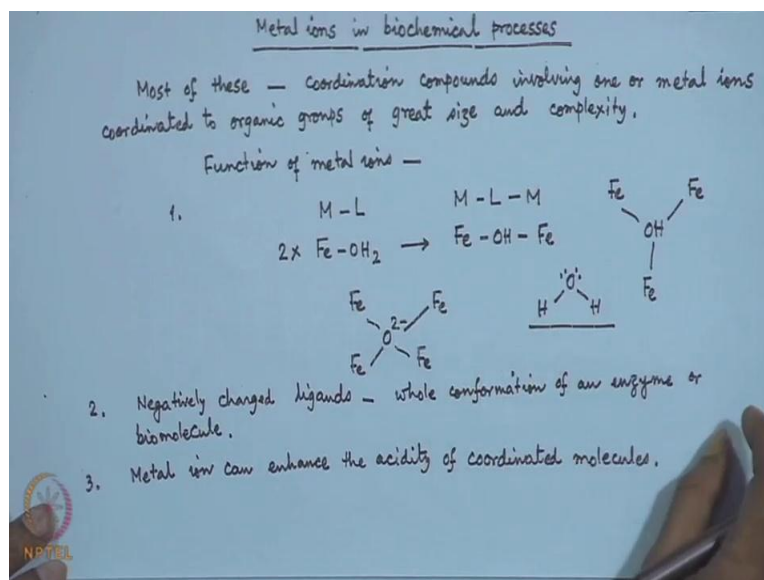 Metal ions in biochemical processes
Most of these — coordination compounds involving one or metal ions
coordinated to organic groups of great size and complexity.
Function of metal ions —
1.
M - L
M - L - M
2x Fe - OH2 → Fe - OH - Fe
Fe
Fe
OH
Fe
:O:
H
H
Fe
Fe
O2-
Fe
Fe
2. Negatively charged ligands - whole conformation of an enzyme or
biomolecule.
3. Metal ion can enhance the acidity of coordinated molecules.
NPTEL